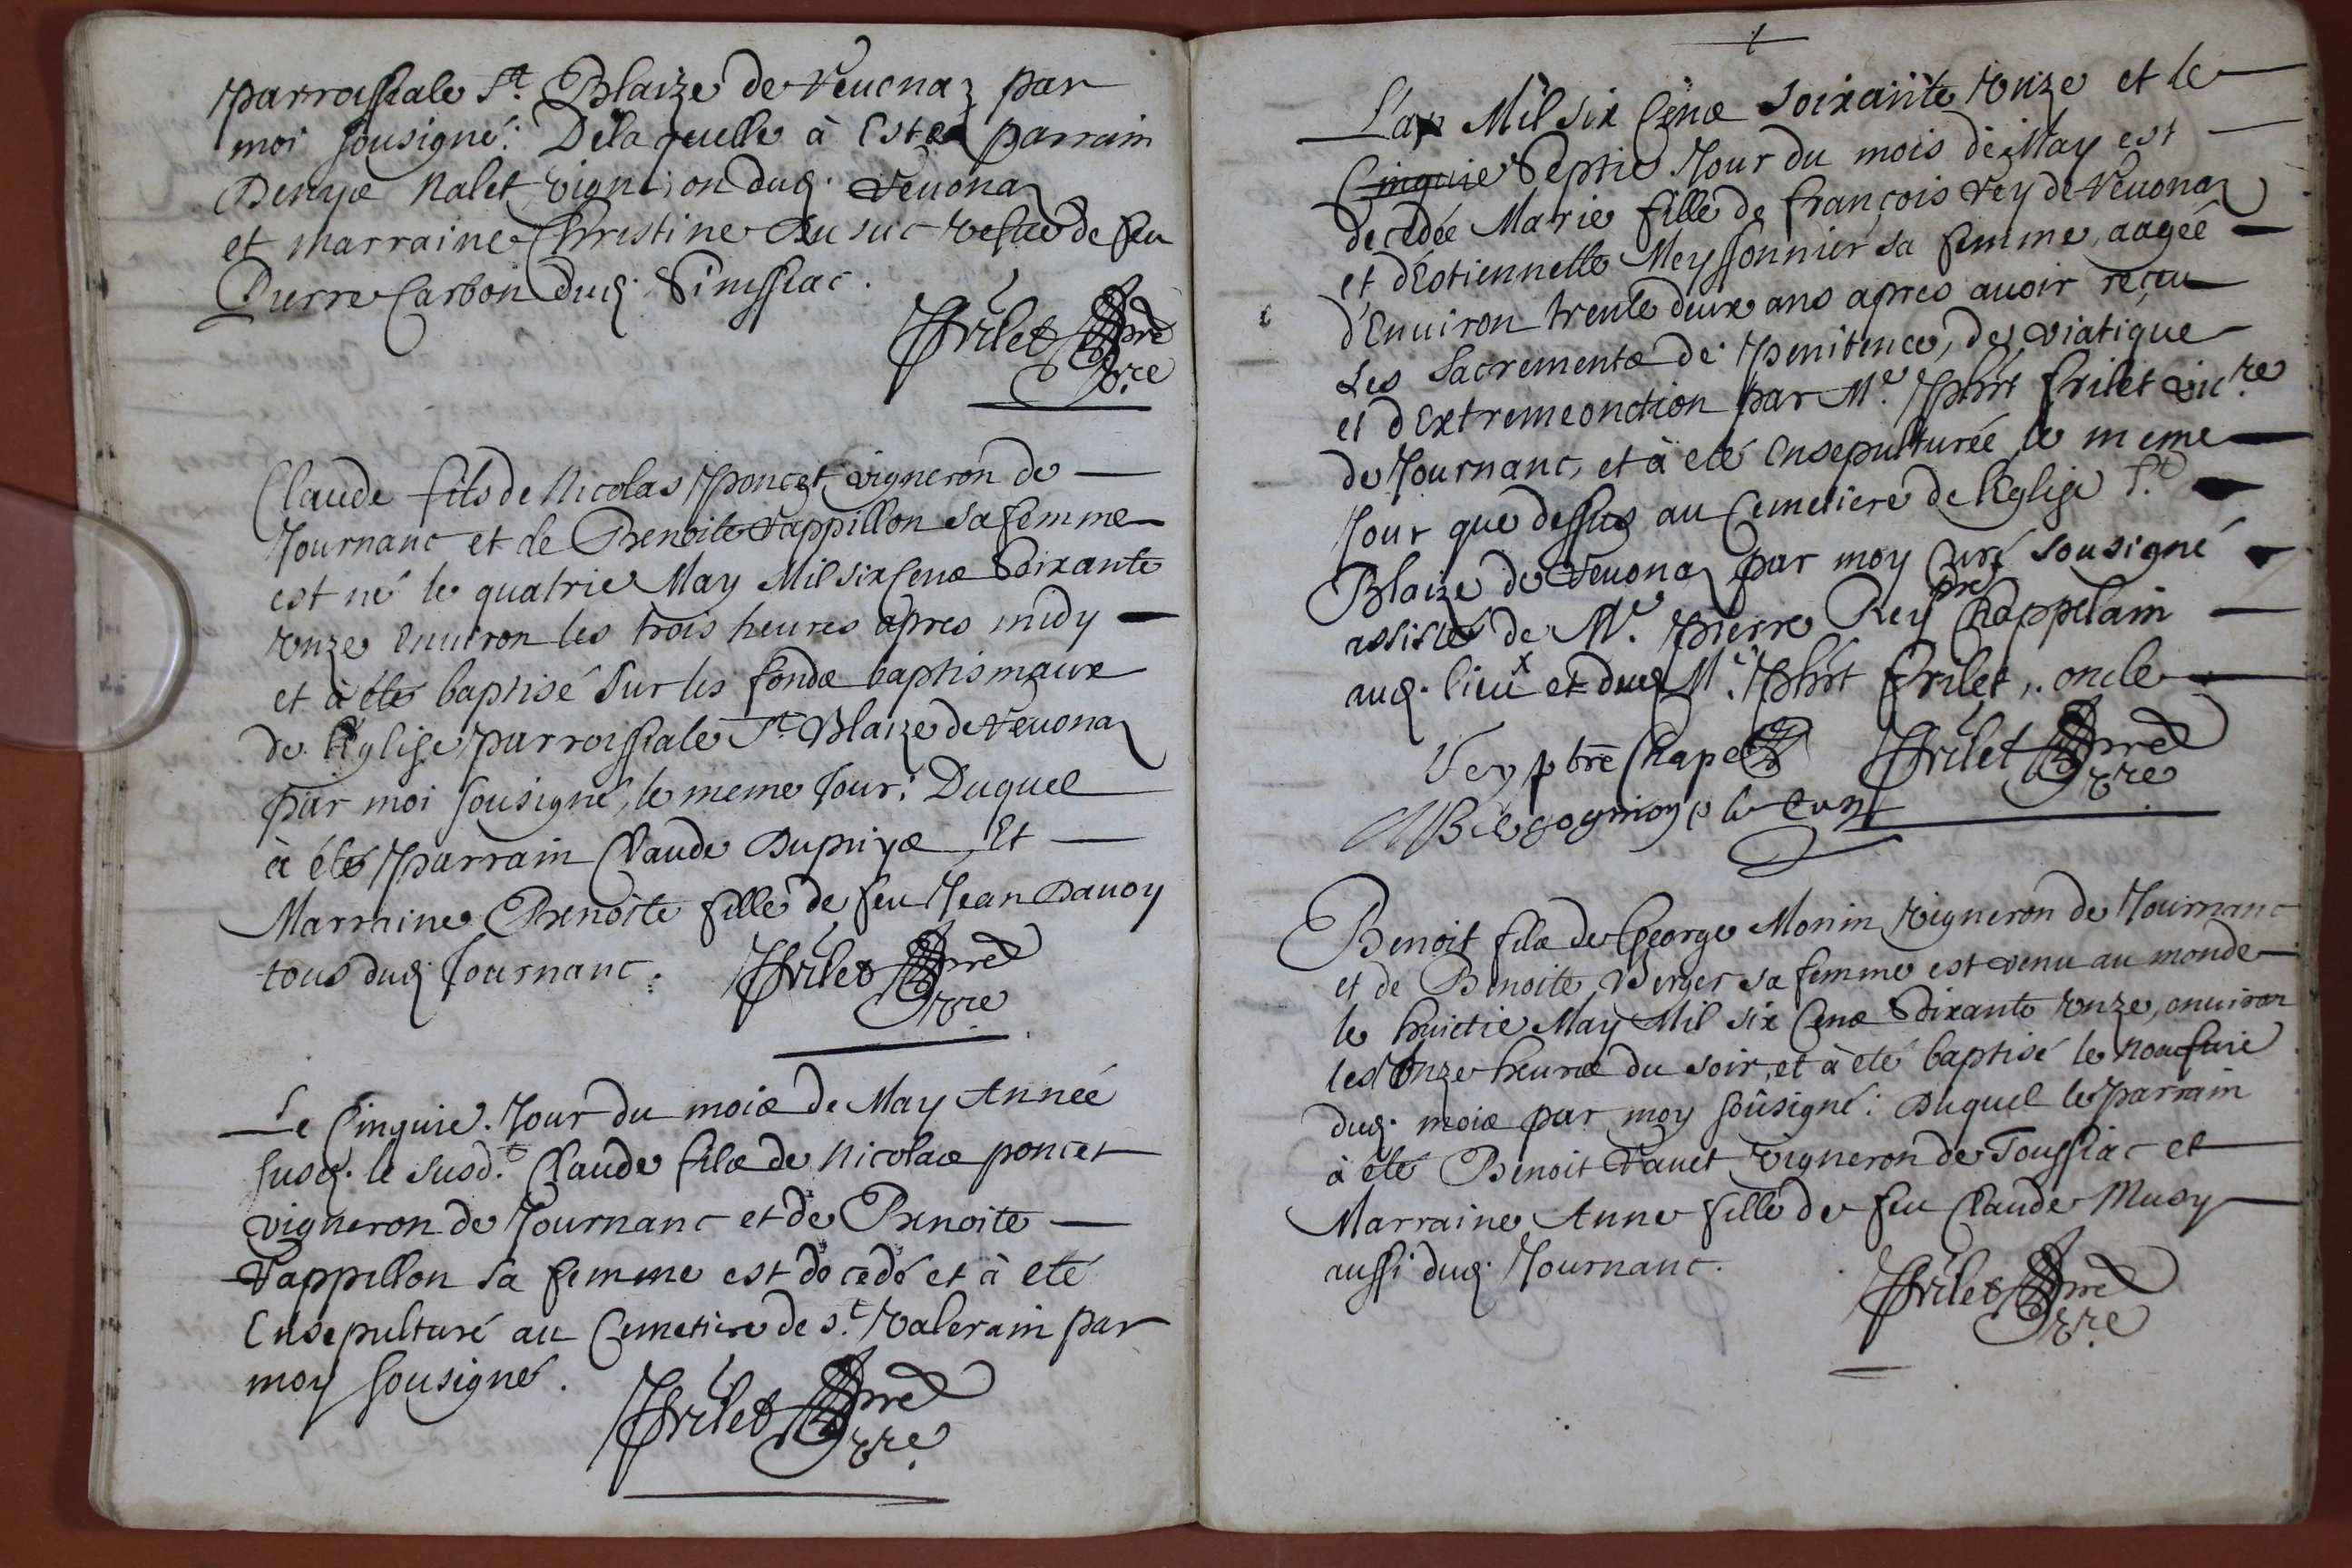 parroissiale St. Blaize de Veuonaz par
moi sousigné: De la quelle à Esté parrain
Denys Nalet, vigneron dud. Veuonaz
et marraine Christine Du suc vefue de feu
Pierre Carbon dud. Simssiac.
Frilet pre
vre
Claude fils de Nicolas Poncet, vigneron de
Journanc et de Benoite Pappillon sa femme
est né le quatrie May Mil six cens Soixante
Unze enuiron les trois heures apres midy
et à été baptisé sur les fonds baptismaux
de l'Eglise parroissiale St Blaize de Veuonaz
par moi sousigné, le meme Jour: Duquel
à été parrain Claude Dupuys, Et
Marraine Benoite fille de feu Jean Dauoy
tous dud Journanc.
Frilet pre
vre
Le Cinquie. Jour du mois de May Année
susd. le susdt. Claude fils de Nicolas poncet
vigneron de Journanc et de Benoite
Pappillon sa femme est decedé et à eté
Ensepulturé au Cemetiere de St. Valerain par
moy sousigné.
Frilet pre
vre
L'an Mil six Cens soixante Unze et le
Cinquie Septie Jour du mois de May est
decedée Marie fille de françois Rey de Veuonaz
et d'Estiennette Meyssonnier sa femme, aagée
d'Enuiron trente deux ans apres auoir reçeu
Les Sacrements de penitence, de viatique
et d'Extremeonction par Me. Phbt frilet vicre
de Journanc, et à eté Ensepulturée le meme
Jour que dessus au Cemetiere de l'Eglise St.
Blaize de Veuonaz par moy Curé sousigné
assisté de Me. pierre Rey pre Chappelain
aud. lieu x et dud Me. Phbt frilet, oncle
Rey ptre Chapel Frilet pre
vre
Curé
Benoit fils de George Monin vigneron de Journanc
et de Benoite Verger sa femme est venu au monde
le huictie May Mil six Cens Soixante Unze, enuiron
les Onze heures du soir, et à eté baptisé le noufuie
dud. mois par moy sousigné: Duquel le parrain
à été Benoit Pauet vigneron de Toussiac et
Marraine Anne fille de feu Claude Musy
aussi dud. Journanc.
Frilet pre
vre